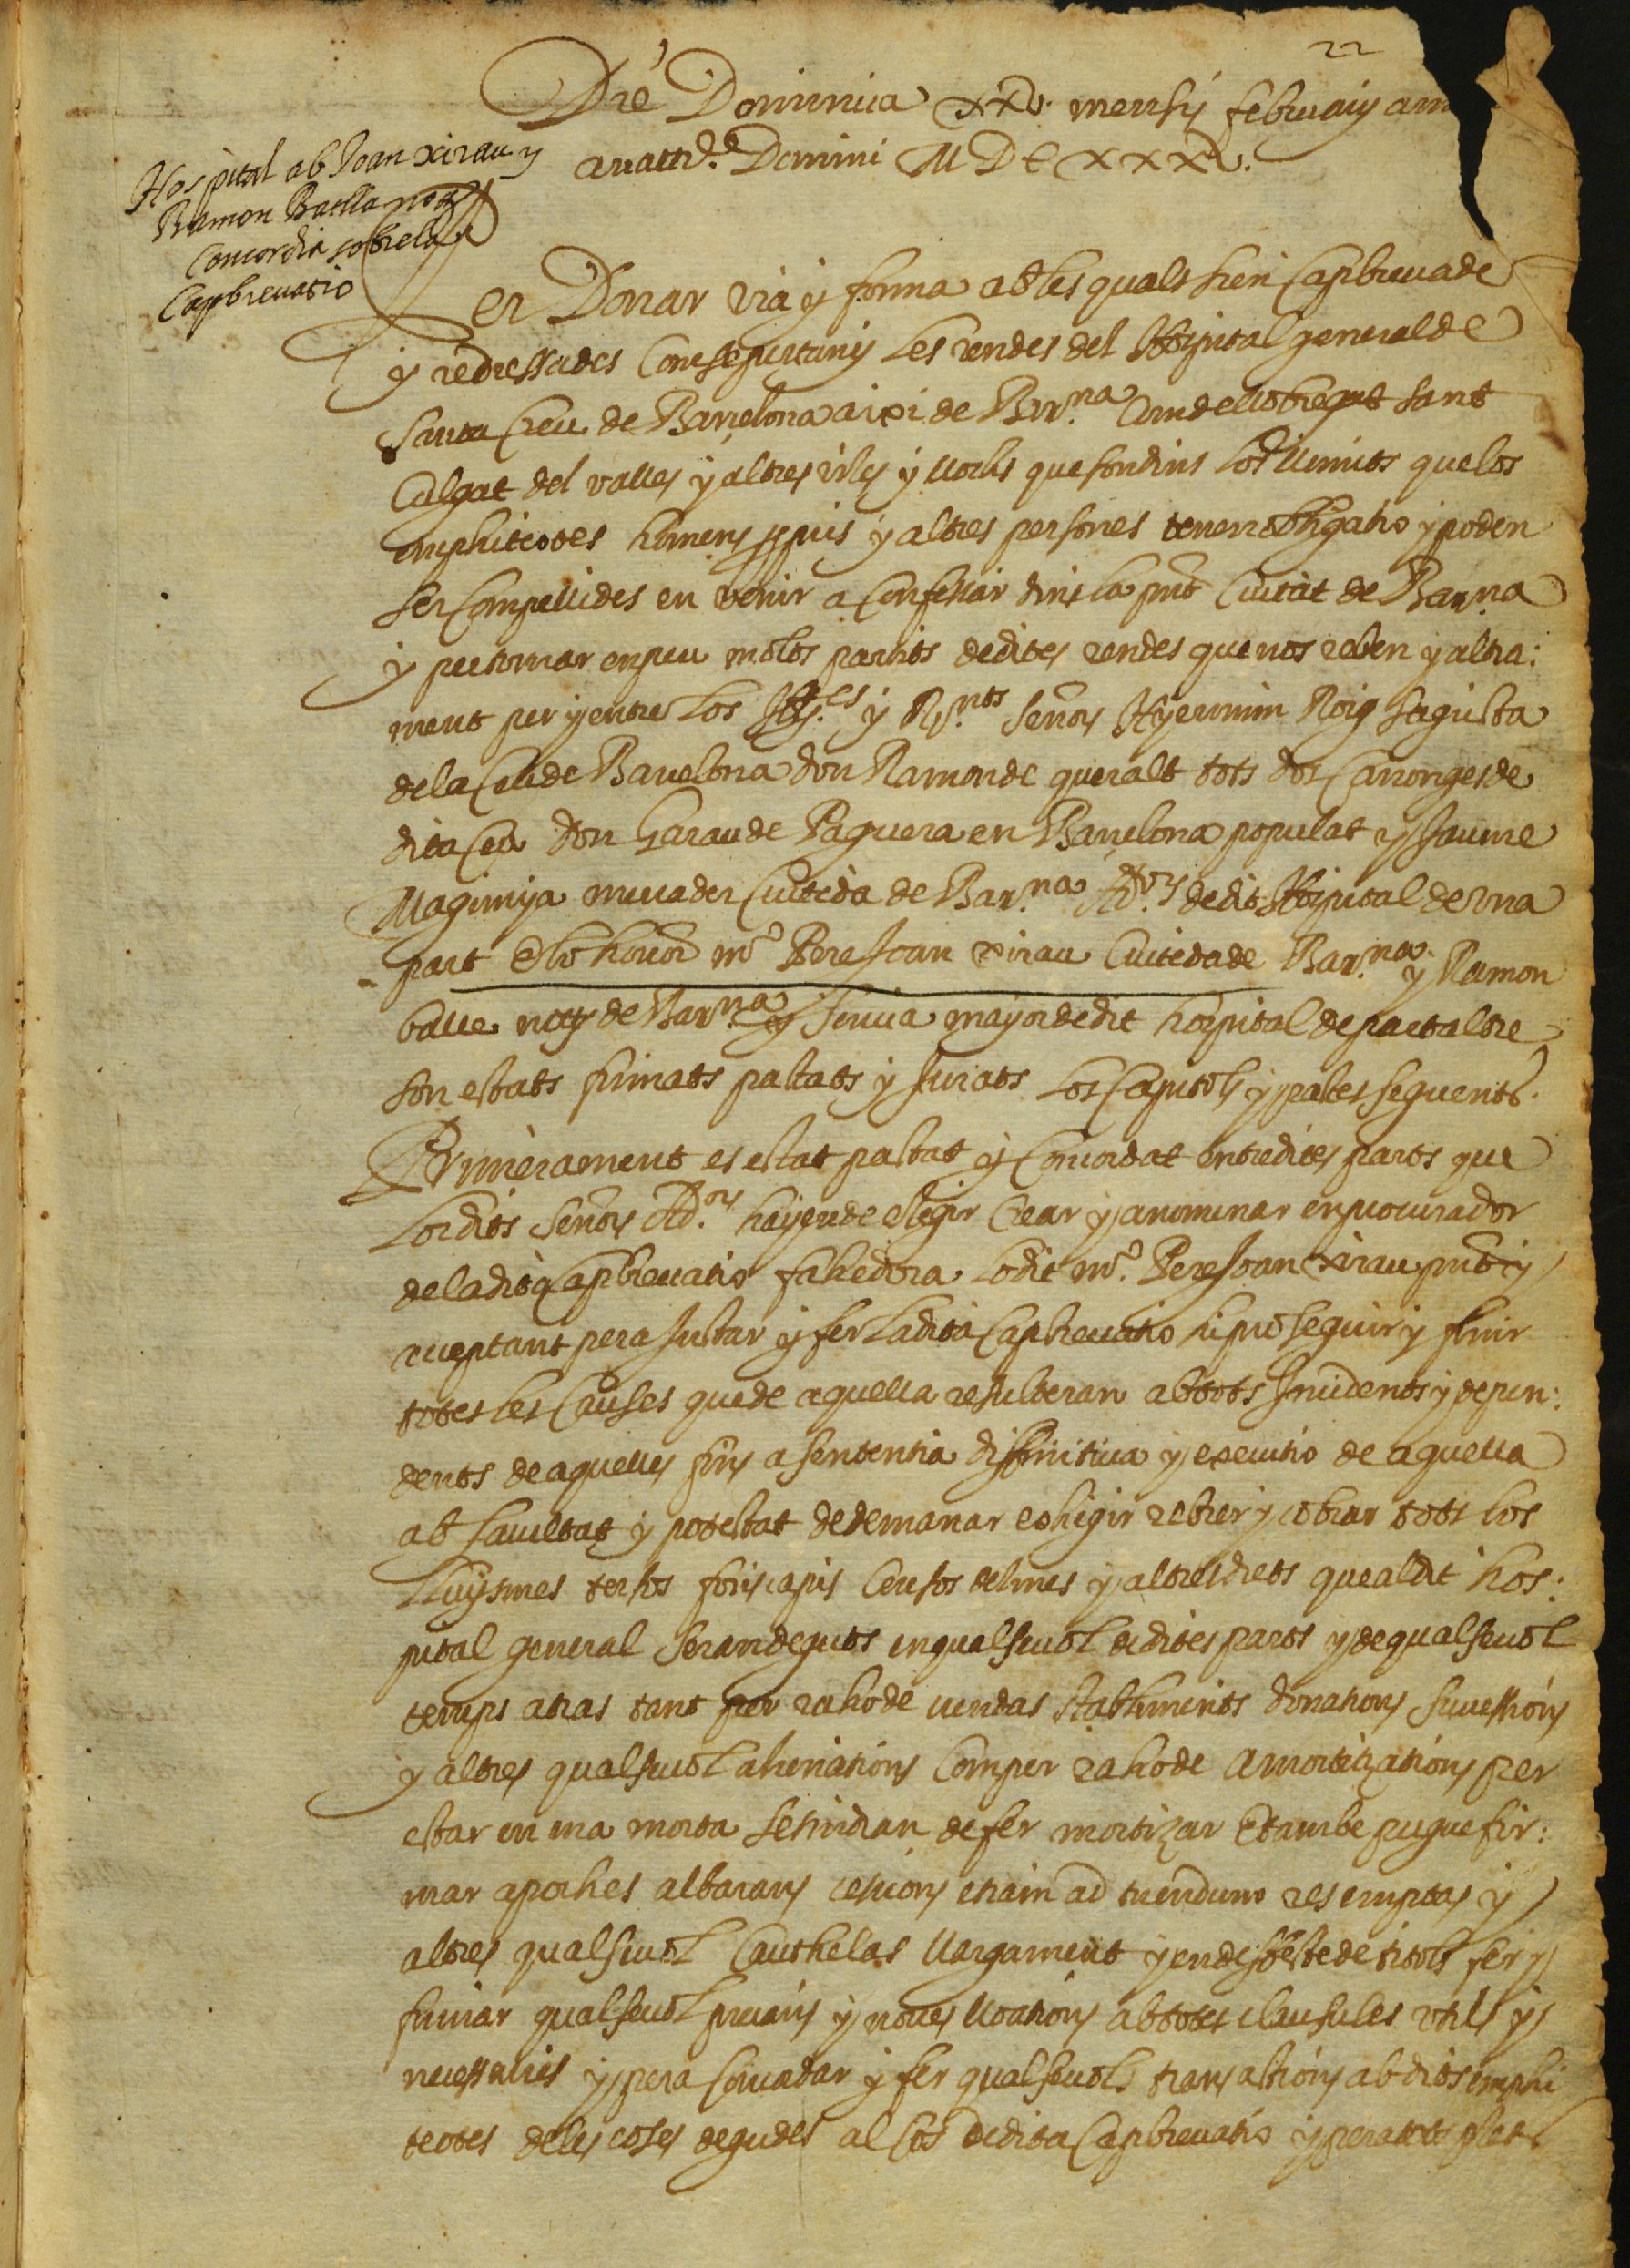 22
Die Dominica xxv. mensis februarij anno
a nattᵉ. Domini MDCxxxv.
Hospital ab Joan xirau y
Ramon Batlla noty
Concordia sobre la
Capbrevatio
Per Donar via y forma ab les quals sien Capbrevade
y redressades Com se pertany les rendes del Hospital general de
Santa Creu de Barcelona aixi de Barⁿᵃ. Com de llobregat sant
Culgat del valles y altres viles y llochs que son dins los llimits que los
emphiteotes homens propis y altres persones tenen obligatio y poden
ser Compellides en venir a Confessar dins la pnt Ciutat de Barⁿᵃ
y per tornar en peu molts partits de dites rendes que nos reben y altra:
ment per y entre los Illᵉˢ. y Rⁿᵗˢ. Señors Hyeronim Roig Sagrista
de la Seu de Barcelona don Ramon de queralt tots dos Canonges de
dita Seu Don Garau de Paguera en Barcelona populat y Jaume
Magimija mercader Ciutedà de Barⁿᵃ. Adᵒʳˢ. de dit Hospital de una
part E lo honor mᵒ Pere Joan xirau Ciutedà de Barⁿᵃ. y Ramon
batlle noty de Barⁿᵃ. y scriva major de dit hospital de part altre
son estats firmats pactats y Jurats los Capitols y pactes seguents.
Primerament es estat pactat y Concordat entre dites parts que
los dits Señors Adᵒʳˢ. hajen de elegir Crear y anominar en procurador
de la dita Capbrevatio fahedora lo dit mᵒ. Pere Joan xirau pnt y
acceptant pera Justar y fer la dita Capbrevatio hi proseguir y finir
totes les Causes que de aquella resulteran ab tots Incidents y depen:
dents de aquelles fins a sententia diffinitiva y executio de aquella
ab facultat y potestat de demanar exhigir rebrer y cobrar tots los
lluysmes tersos foriscapis Censos delmes y altres drets que al dit hos:
pital general seran deguts en qualsevol de dites parts y de qualsevol
temps atras tant per raho de vendas stabliments donations successions
y altres qualsevol alienations Com per raho de amortizations per
estar en ma morta se tindran de fer mortizar E tambe pugue fir:
mar apoches albarans cessions etiam ad tuendum res emptas y
altres qualsevol Cauthelas llargament y en defecte de titols fer y
firmar qualsevol precaris y noves llocations ab totes clausules utils y
necessaries y pera Concordar y fer qualsevols transactions ab dits emphi
teotes de les coses degudes al Cos de dita Capbrevatio y pera tots plets